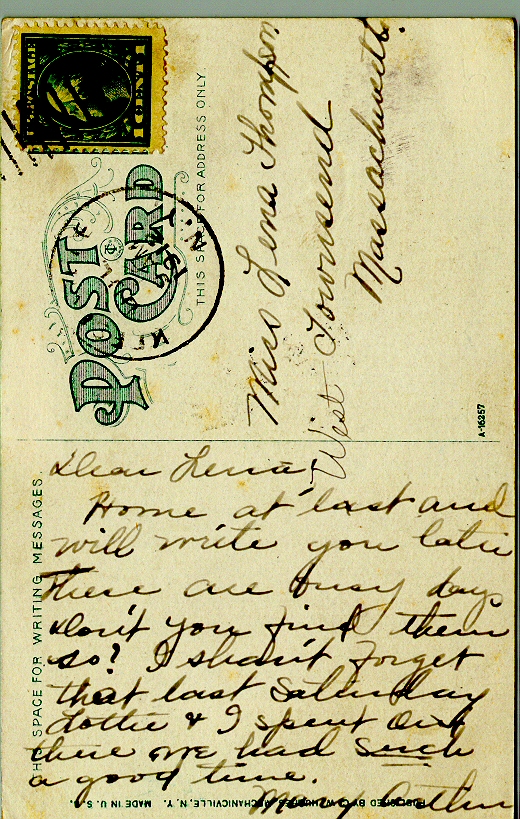 U.S. POSTAGE
1 CENT 1
POST CARD
THIS SPACE FOR ADDRESS ONLY.
Miss Lena Thompson
West Townsend
Massachusetts.
A-16257
THIS SPACE FOR WRITING MESSAGES.
Dear Lena,
Home at last and
will write you later
These are busy days
don't you find them
so? I shan't forget
that last Saturday
Lottie & I spent out
there we had such
a good time.
Mary
PUBLISHED BY C. W. HUGHES, MECHANICVILLE, N.Y. MADE IN U.S.A.